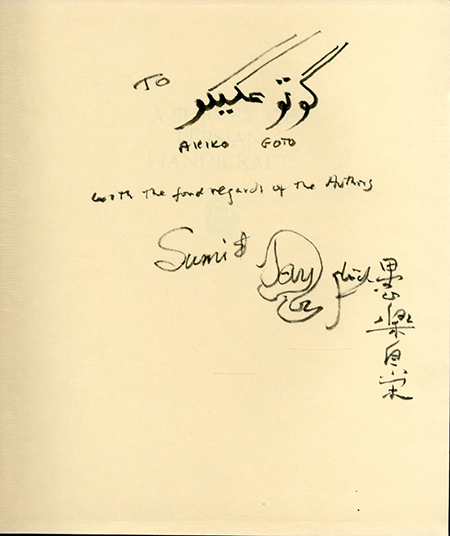 TO گوتو عکیکو
AKIKO GOTO
with the fond regards of the Authors
Sumi & Jay Gluck
樂
自
栄